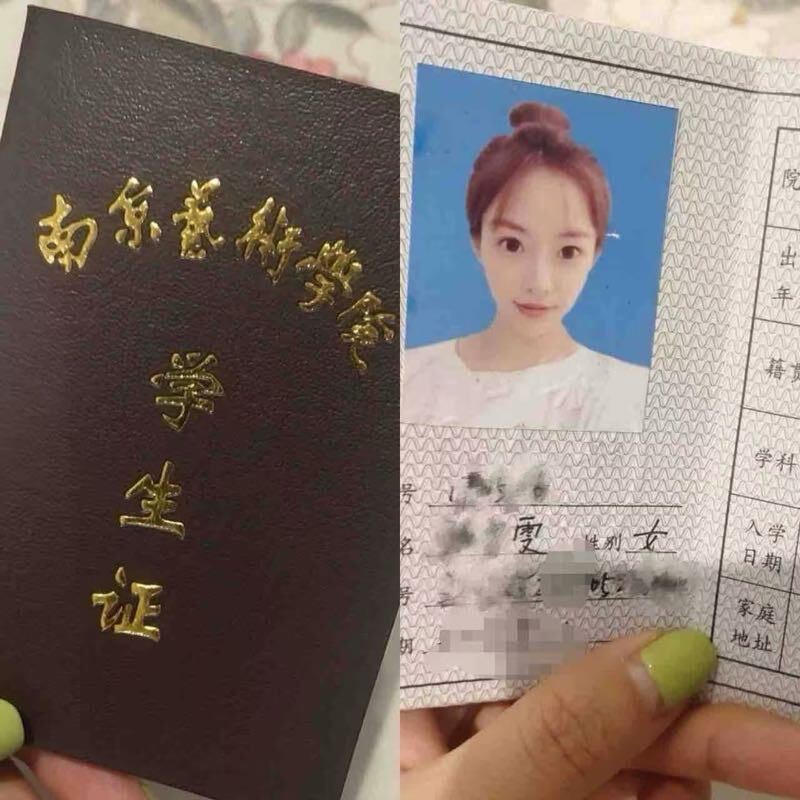 南京藝術學院
学
生
证
院
出
年
籍贯
学科
号
名 雯 性别 女
号 05
期
入学
日期
家庭
地址